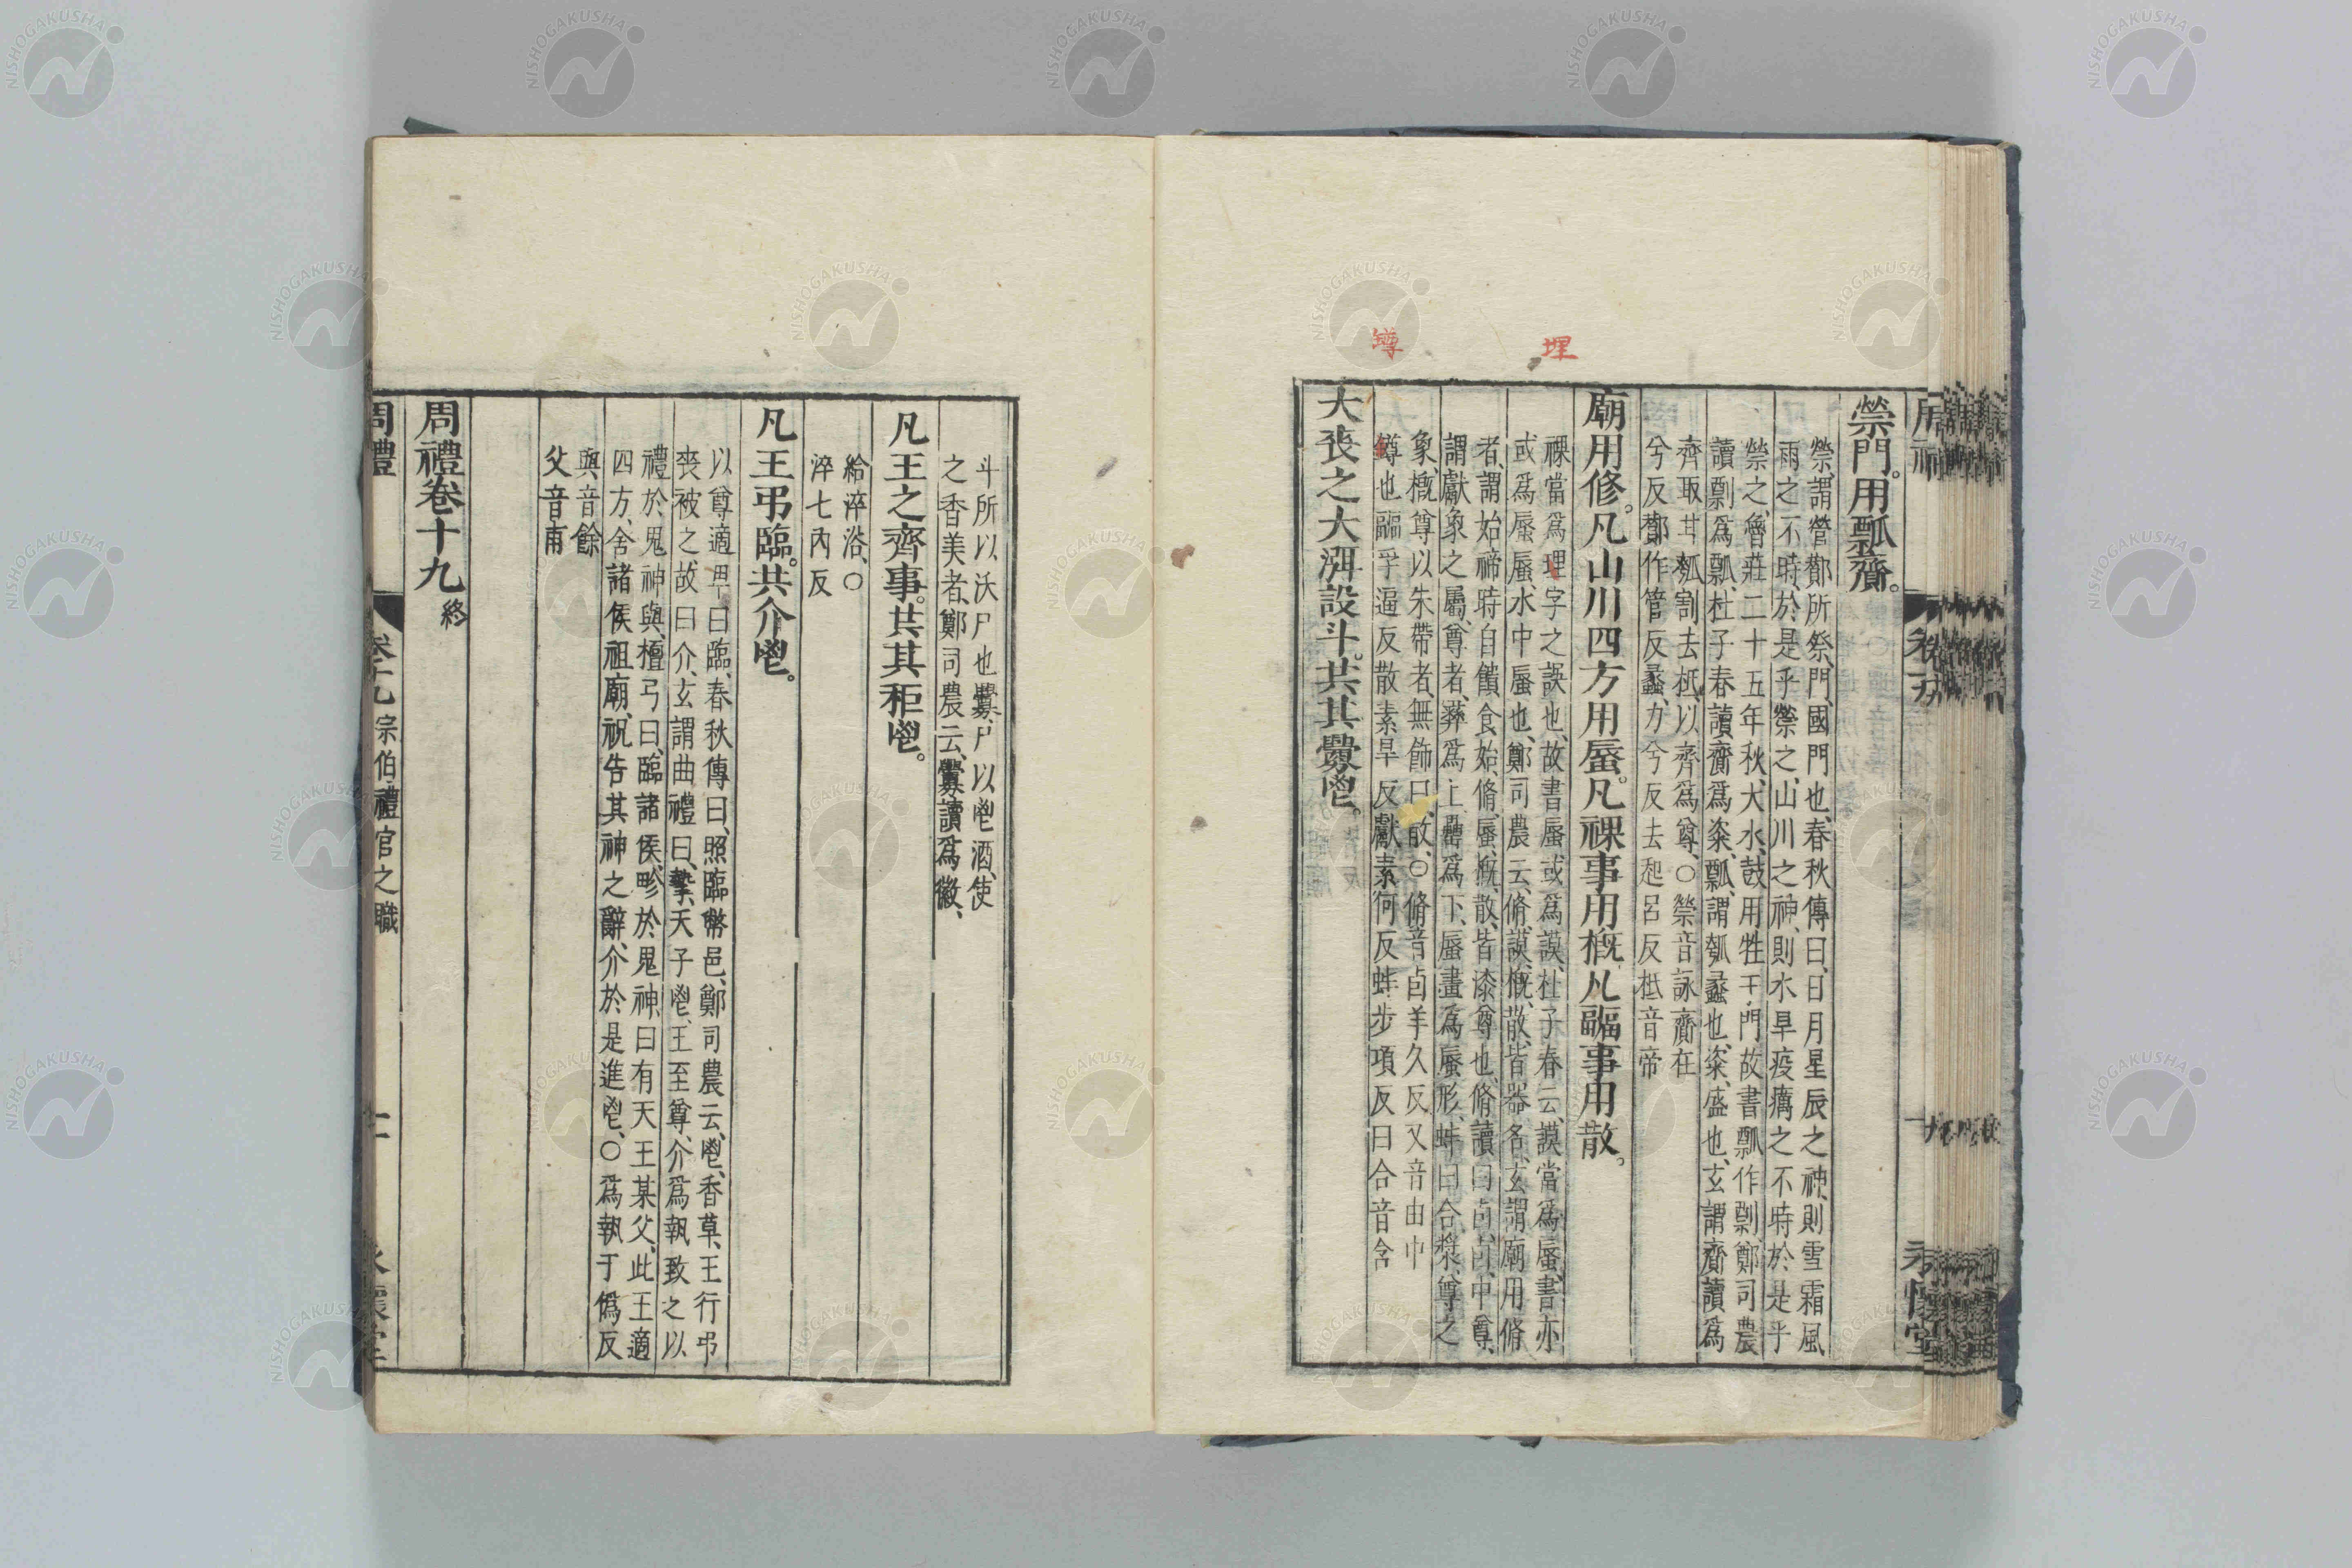 埋
罇
禜門。用瓢齎。
禜、謂營酇所祭、門、國門也、春秋傳曰、日月星辰之神、則雪霜風
雨之不時、於是乎禜之、山川之神、則水旱疫癘之不時於是乎
禜之、魯莊二十五年秋、大水、鼓用牲于門、故書瓢作剽、鄭司農
讀剽爲瓢、杜子春讀齎爲粢、瓢、謂瓠蠡也、粢、盛也、玄謂齎讀爲
齊、取甘瓠割去柢、以齊爲尊、○禜音詠齎在
兮反酇作管反蠡力兮反去起呂反柢音帝
廟用修。凡山川四方用蜃。凡祼事用概。凡疈事用散。
祼當爲理字之誤也、故書蜃或爲謨、杜子春云、謨當爲蜃、書亦
或爲蜃、蜃、水中蜃也、鄭司農云、脩、謨、概、散、皆器名、玄謂廟用脩
者、謂始禘時自饋食始、脩、蜃、概、散、皆漆尊也、脩、讀曰卣、卣、中尊、
謂獻象之屬、尊者、彝爲上、罍爲下、蜃、畫爲蜃形、蚌曰合漿、尊之
象、概、尊以朱帶者、無飾曰散、○脩音卣羊久反又音由中
罇也疈孚逼反散素旱反獻素何反蚌步項反曰合音含
大喪之大渳設斗。共其釁鬯。
斗所以沃尸也、釁、尸以鬯酒、使
之香美者、鄭司農云、釁讀爲徽、
凡王之齊事。共其秬鬯。
給淬浴、○
淬七內反
凡王弔臨。共介鬯。
以尊適卑曰臨、春秋傳曰、照臨幣邑、鄭司農云、鬯、香草、王行弔
喪被之、故曰介、玄謂曲禮曰、摯、天子鬯、王至尊、介爲執致之以
禮於鬼神與、檀弓曰、臨諸侯、畛於鬼神、曰有天王某父、此王適
四方、舍諸侯祖廟、祝告其神之辭、介於是進鬯、○爲執于僞反
與音餘
父音甫
周禮卷十九 終
周禮 卷十九 宗伯禮官之職 十一 永懷堂